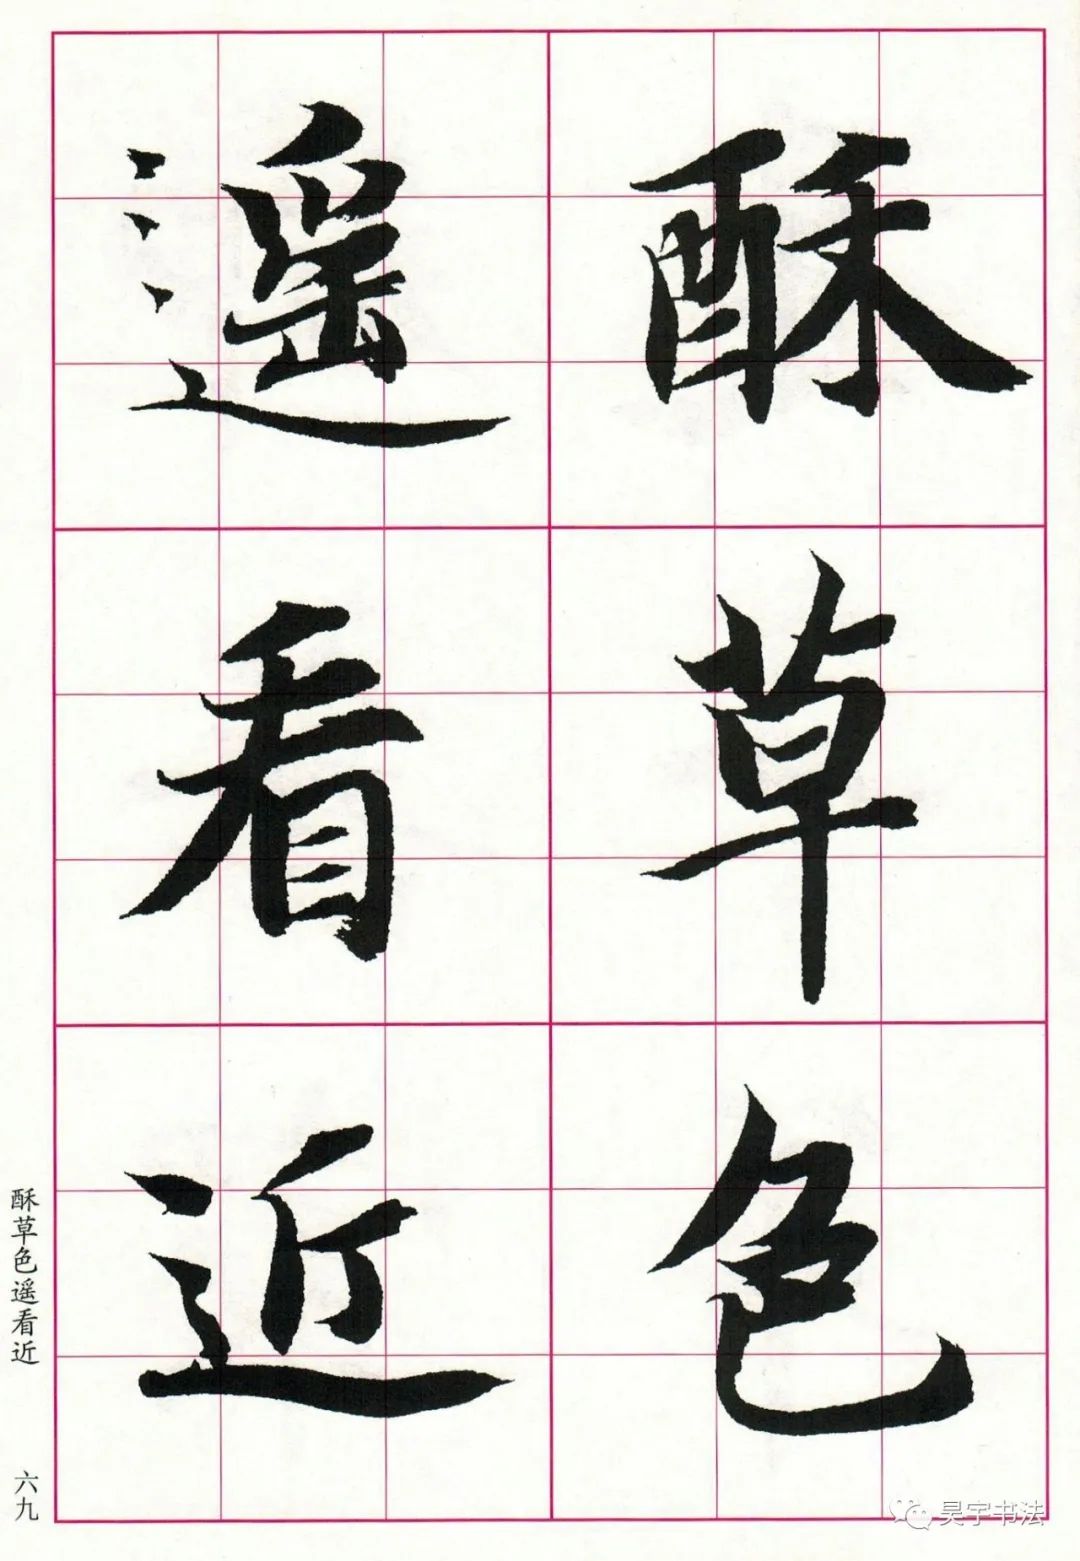 酥草色
遥看近
酥草色遥看近
六九
昊宇书法